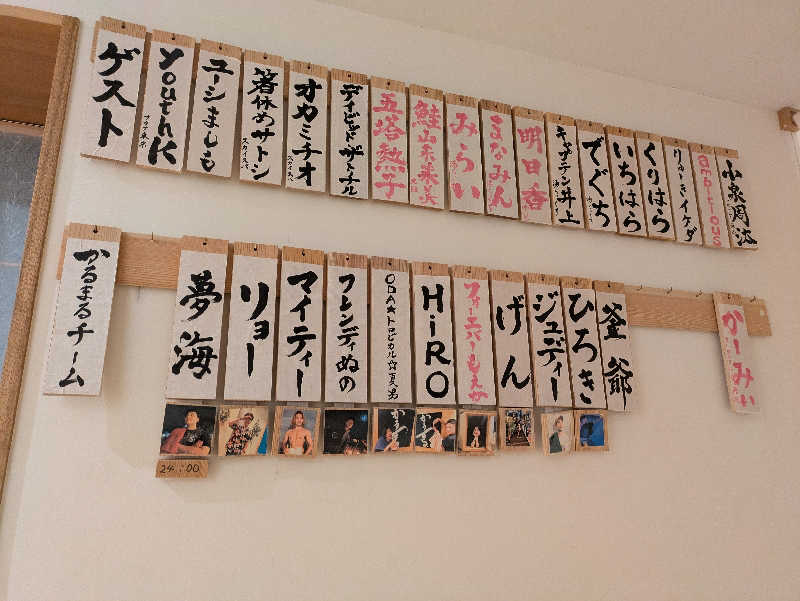 ゲスト
youthK
ユーシましも
箸休めサトシ
オカミチオ
デイビッド・ザ・ミチル
五塔熱子
鮭山未菜美
みらい
まなみん
明日香
キャプテン井上
でぐち
いちはら
くりはら
りゅうきイケダ
ambitious
小泉周汰
かるまるチーム
夢海
リョー
マイティー
フレンディぬの
ODA★トロピカル☆夏男
HiRO
フォーエバーもえか
げん
ジュディー
ひろき
釜爺
かーみぃ
24:00